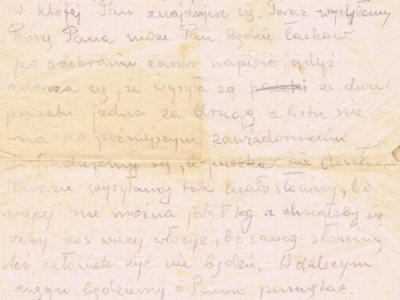 w której Pan znajdujesz się. Teraz wysyłamy
Proszę Pana może Pan będzie łaskaw
po odebraniu zaraz napisać gdyż
zdarza się, że wysyła się paczki za dużo
paczka jedna za drugą a listu nie
ma po późniejszym zawiadomieniu
się, że paczka nie doszła
Narazie wysyłamy tak mało słoniny, bo
więcej nie można jak 8 kg a chciałoby się
żeby coś więcej włożyć, bo samą słoniną
też człowiek żyć nie będzie. W dalszym
ciągu będziemy o Panu pamiętać.